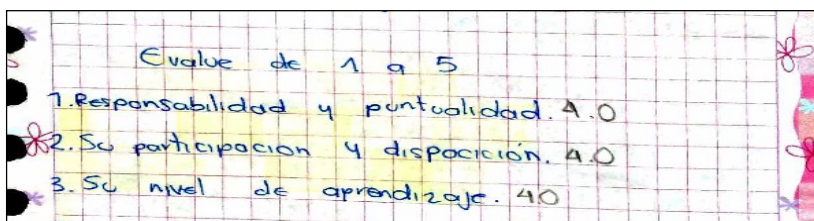 Evalue de 1 a 5
1. Responsabilidad y puntualidad. 4.0
2. Su participacion y dispocición. 4.0
3. Su nivel de aprendizaje. 40